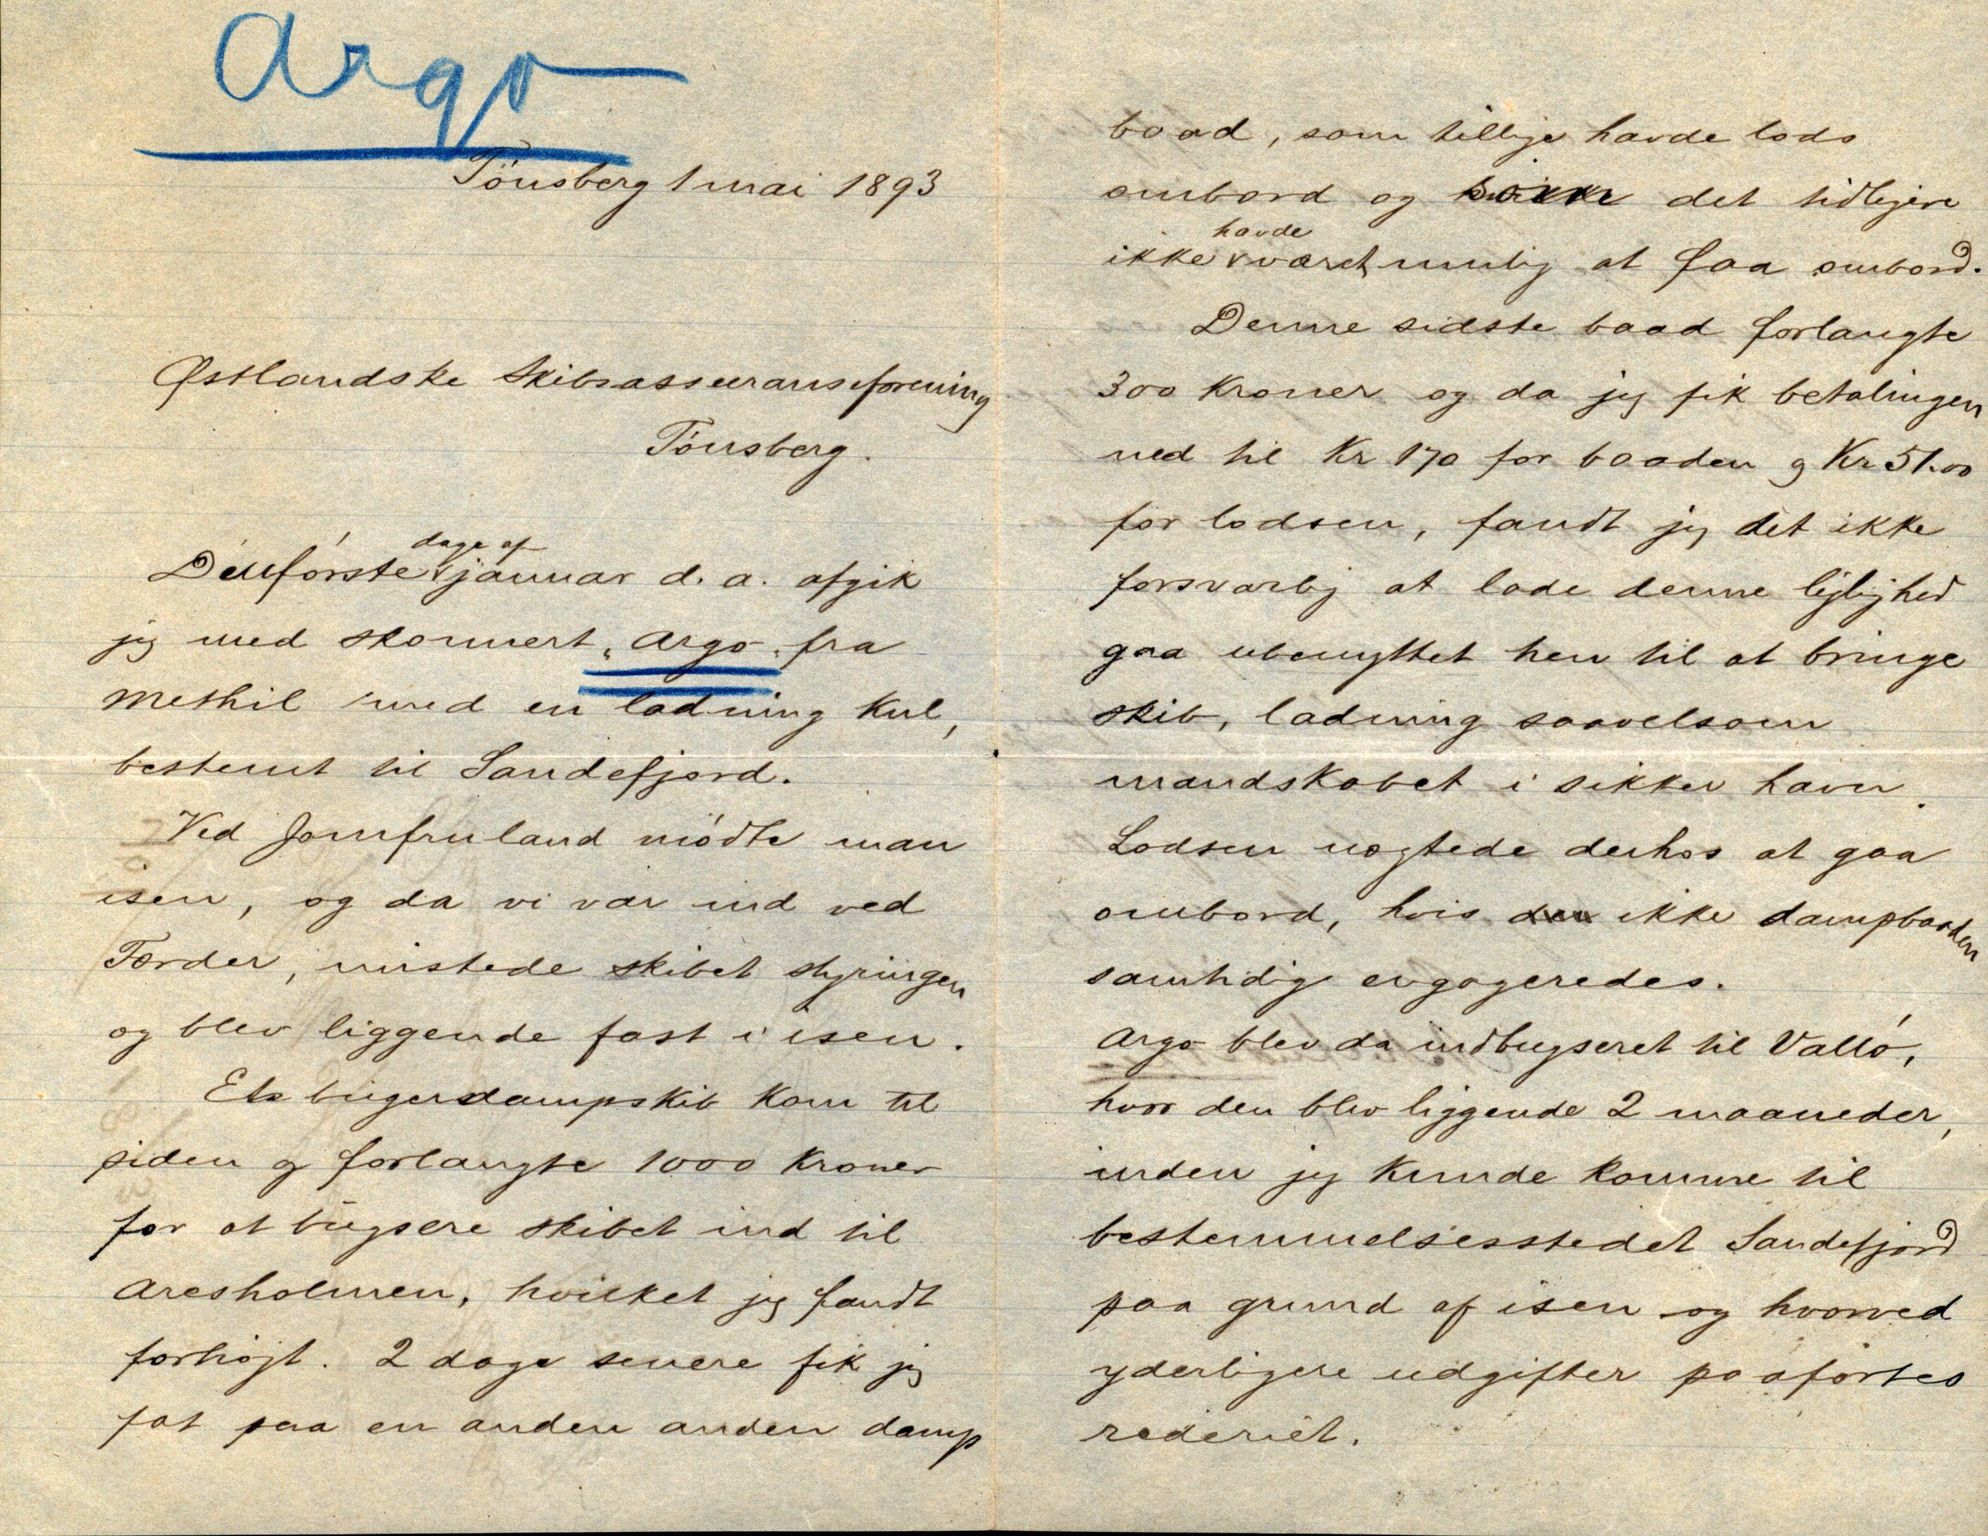 Argo
Tönsberg 1 mai 1893
Østlandske Skibsassuranseforening
Tönsberg.
Den förste dage af januar d. a. afgik
jeg med skonnert „Argo„ fra
Methil med en ladning kul,
bestemt til Sandefjord.
Ved Jomfruland mödte man
isen, og da vi var ind ved
Færder, mistede skibet styringen
og blev liggende fast i isen.
Et bugserdampskib kom til
siden og forlangte 1000 Kroner
for at bugsere skibet ind til
Aresholmen, hvilket jeg fandt
forhöjt. 2 dage senere fik jeg
fat paa en anden anden damp
baad, som tillige havde lods
ombord og det tidligere
ikke havde været mulig at faa ombord.
Denne sidste baad forlangte
300 Kroner og da jeg fik betalingen
ned til Kr 170 for baaden og Kr 51.00
for lodsen, fandt jeg det ikke
forsvarlig at lade denne lejlighed
gaa ubenyttet hen til at bringe
skib, ladning saavelsom
mandskabet i sikker havn.
Lodsen nægtede derhos at gaa
ombord, hvis ikke dampbaaden
samtidig engageredes.
Argo blev da indbugseret til Vallö,
hvor den blev liggende 2 maaneder,
inden jeg kunde komme til
bestemmelsesstedet Sandefjord
paa grund af isen og hvorved
yderligere udgifter paaförtes
rederiet.